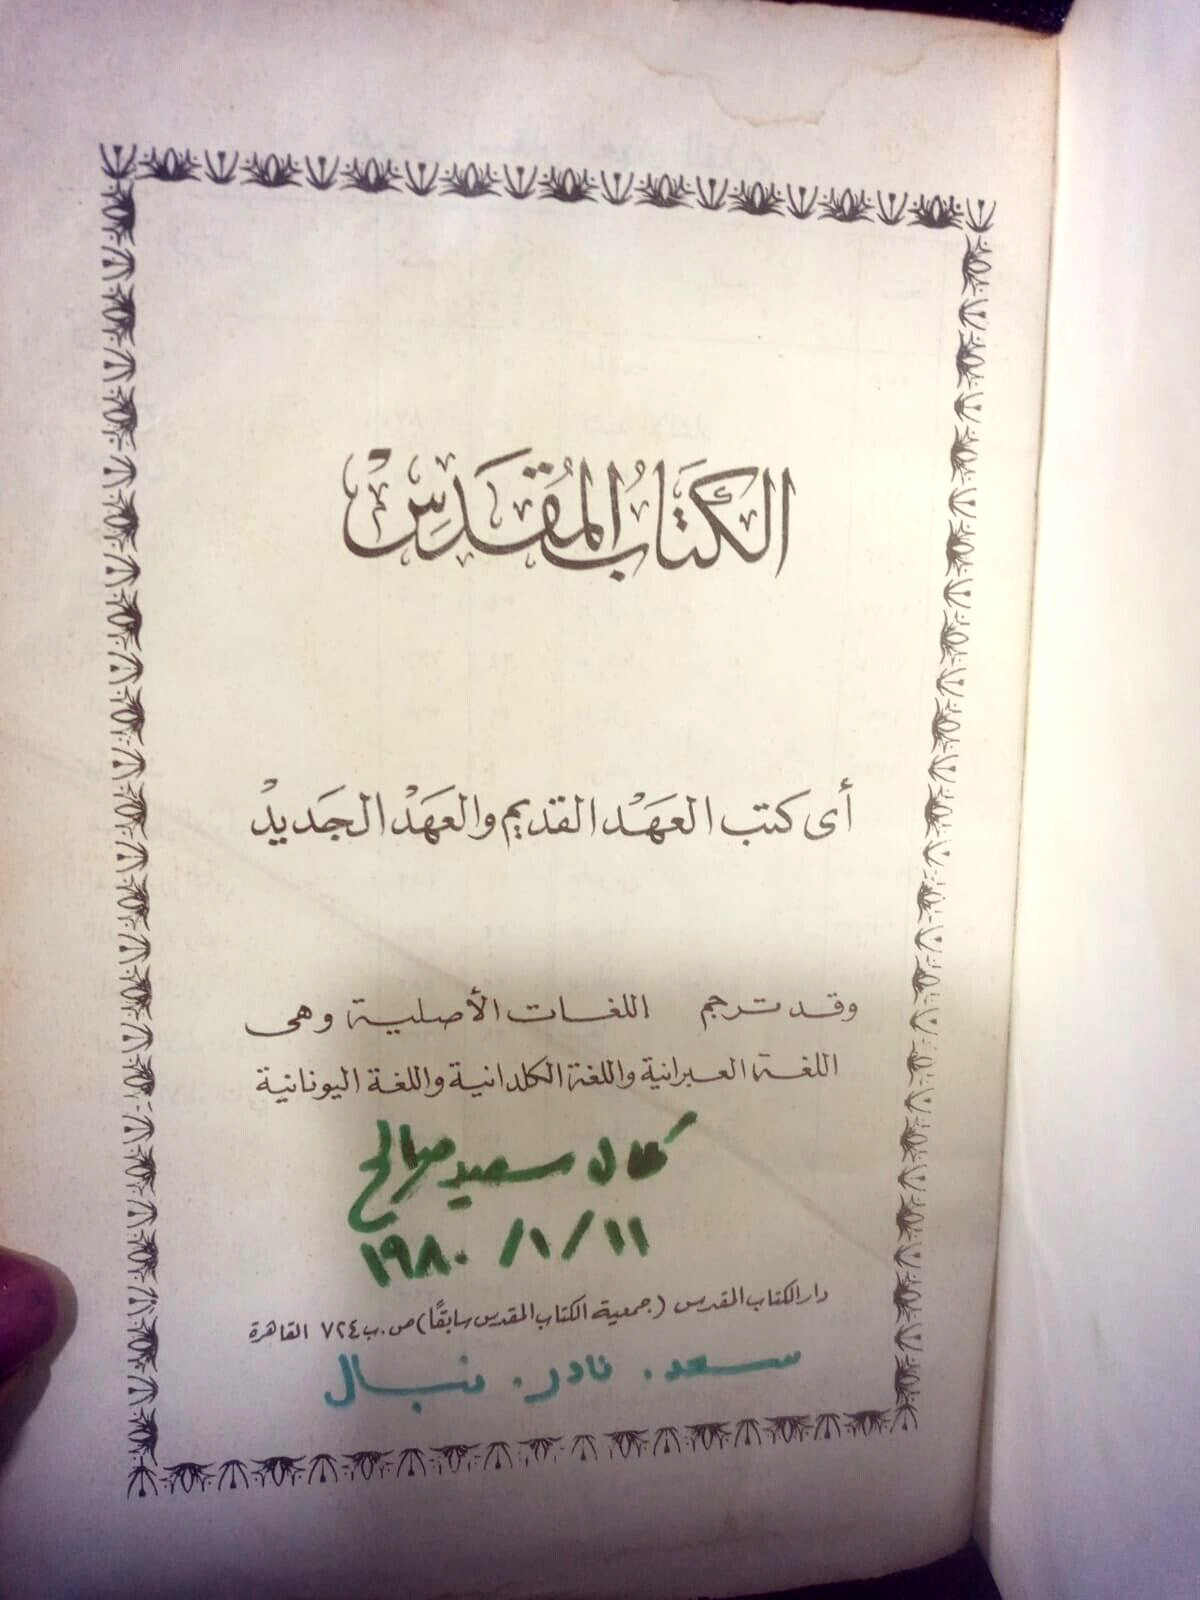 الكِتَابُ المُقَدَّسُ
أى كتب العَهْد القديم والعَهْد الجَديدْ
وقد ترجم اللغات الأصلية وهى
اللغة العبرانية واللغة الكلدانية واللغة اليونانية
كمال سعيد صالح
١١/١/١٩٨٠
دار الكتاب المقدس (جمعية الكتاب المقدس سابقًا) ص.ب ٧٢٤ القاهرة
سعد. نادر. نبال